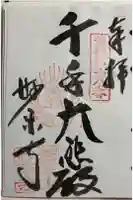 奉拝
千手大悲殿
妙楽寺